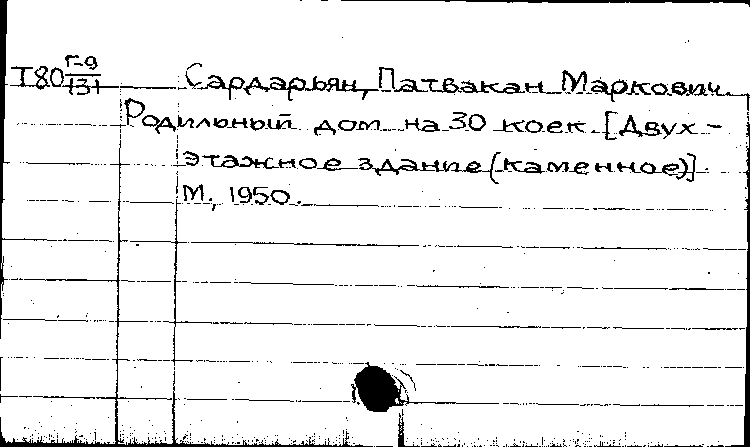 Т80 Г-9/131 Сардарьян, Патвакан Маркович.
Родильный дом на 30 коек. [Двух-
этажное здание (каменное)].
М., 1950.